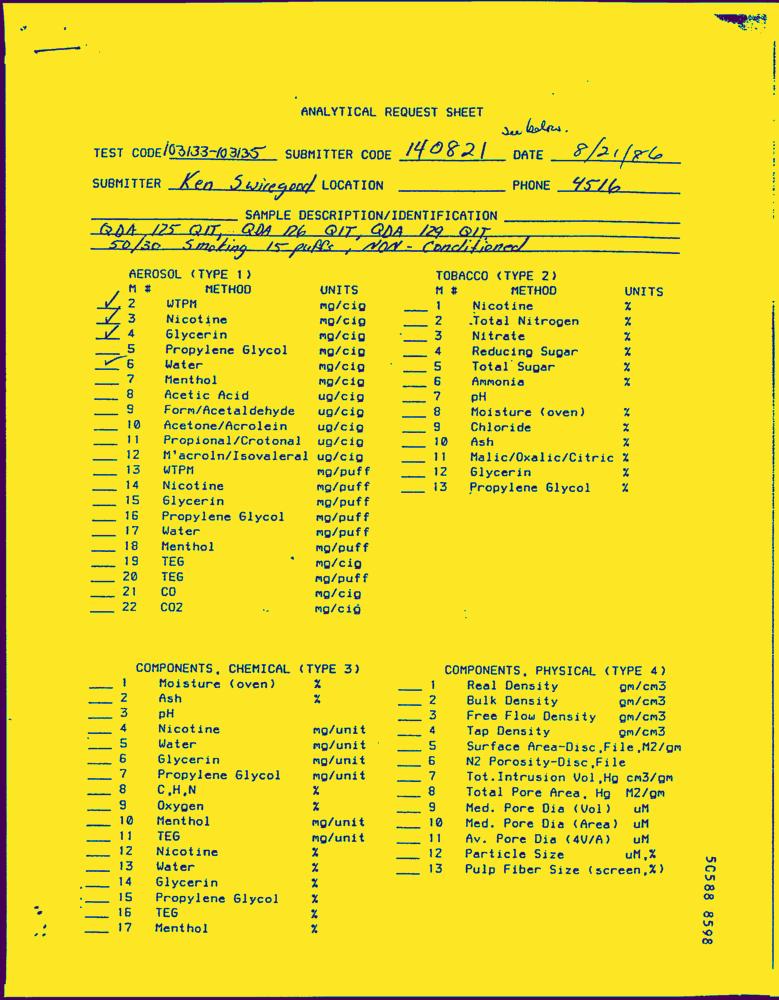 ANALYTICAL REQUEST SHEET
see below.
TEST CODE 103133-103135 SUBMITTER CODE 140821 DATE 8/21/86
SUBMITTER Ken Swicegood LOCATION PHONE 4516
SAMPLE DESCRIPTION/IDENTIFICATION
QDA 125 QIT, QDA 126 QIT, QDA 129 QIT
50/30 Smoking 15 puffs, NON-Conditioned
AEROSOL (TYPE 1)
M # METHOD UNITS
✓ 2 WTPM mg/cig
✓ 3 Nicotine mg/cig
✓ 4 Glycerin mg/cig
5 Propylene Glycol mg/cig
✓ 6 Water mg/cig
7 Menthol mg/cig
8 Acetic Acid ug/cig
9 Form/Acetaldehyde ug/cig
10 Acetone/Acrolein ug/cig
11 Propional/Crotonal ug/cig
12 M'acroln/Isovaleral ug/cig
13 WTPM mg/puff
14 Nicotine mg/puff
15 Glycerin mg/puff
16 Propylene Glycol mg/puff
17 Water mg/puff
18 Menthol mg/puff
19 TEG mg/cig
20 TEG mg/puff
21 CO mg/cig
22 CO2 mg/cig
TOBACCO (TYPE 2)
M # METHOD UNITS
1 Nicotine %
2 Total Nitrogen %
3 Nitrate %
4 Reducing Sugar %
5 Total Sugar %
6 Ammonia %
7 pH
8 Moisture (oven) %
9 Chloride %
10 Ash %
11 Malic/Oxalic/Citric %
12 Glycerin %
13 Propylene Glycol %
COMPONENTS, CHEMICAL (TYPE 3)
1 Moisture (oven) %
2 Ash %
3 pH
4 Nicotine mg/unit
5 Water mg/unit
6 Glycerin mg/unit
7 Propylene Glycol mg/unit
8 C,H,N %
9 Oxygen %
10 Menthol mg/unit
11 TEG mg/unit
12 Nicotine %
13 Water %
14 Glycerin %
15 Propylene Glycol %
16 TEG %
17 Menthol %
COMPONENTS, PHYSICAL (TYPE 4)
1 Real Density gm/cm3
2 Bulk Density gm/cm3
3 Free Flow Density gm/cm3
4 Tap Density gm/cm3
5 Surface Area-Disc,File,M2/gm
6 N2 Porosity-Disc,File
7 Tot.Intrusion Vol,Hg cm3/gm
8 Total Pore Area, Hg M2/gm
9 Med. Pore Dia (Vol) uM
10 Med. Pore Dia (Area) uM
11 Av. Pore Dia (4V/A) uM
12 Particle Size uM,%
13 Pulp Fiber Size (screen,%)
50588 8598